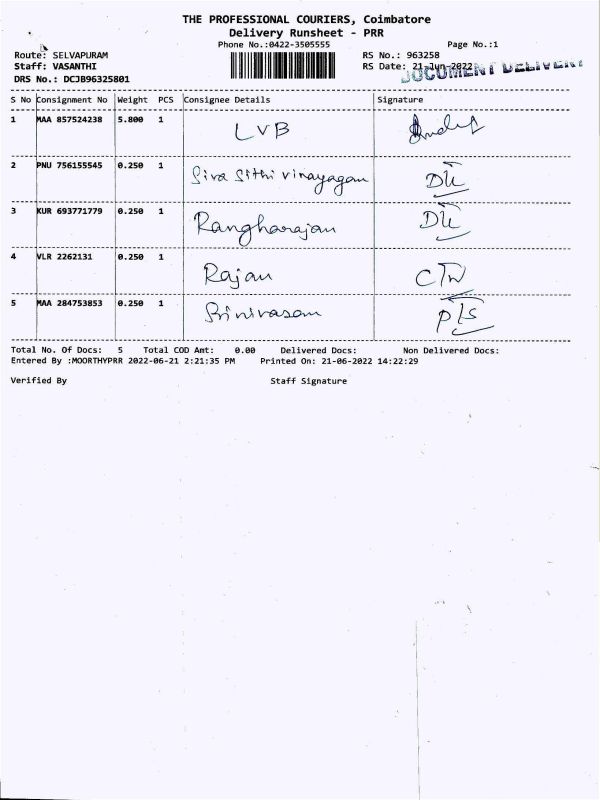 THE PROFESSIONAL COURIERS, Coimbatore
Delivery Runsheet - PRR
Phone No.:0422-3505555 Page No.:1
Route: SELVAPURAM RS No.: 963258
Staff: VASANTHI RS Date: 21-Jun-2022
DOCUMENT DELIVERY
DRS No.: DCJB96325801
S No Consignment No Weight PCS Consignee Details Signature
1 MAA 857524238 5.800 1 LVB
2 PNU 756155545 0.250 1 Siva Sithi vinayagan
3 KUR 693771779 0.250 1 Rangharajan
4 VLR 2262131 0.250 1 Rajan
5 MAA 284753853 0.250 1 Srinivasan
Total No. Of Docs: 5 Total COD Amt: 0.00 Delivered Docs: Non Delivered Docs:
Entered By :MOORTHYPRR 2022-06-21 2:21:35 PM Printed On: 21-06-2022 14:22:29
Verified By Staff Signature